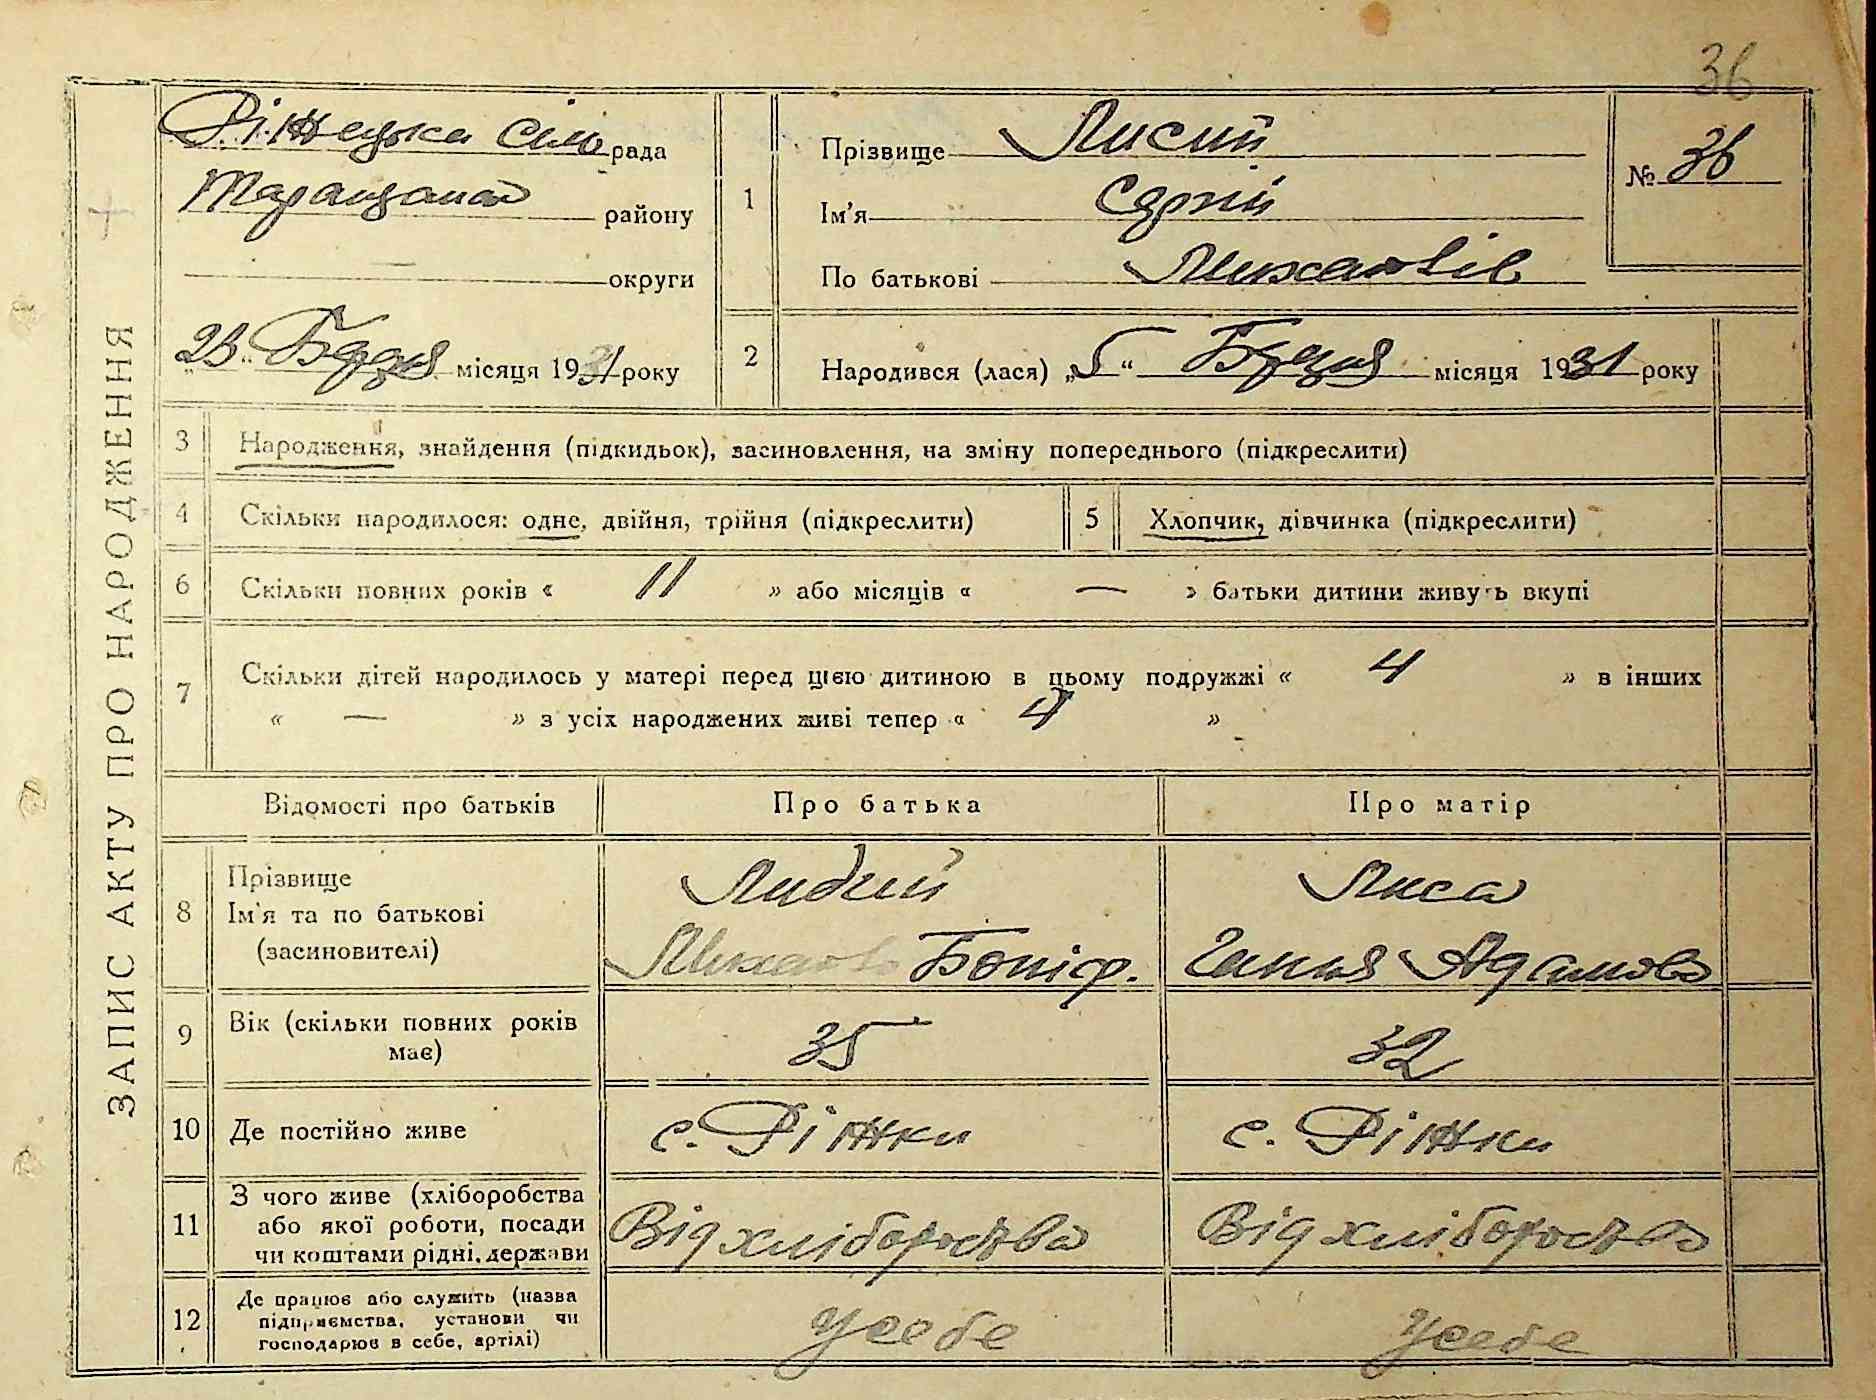 36
ЗАПИС АКТУ ПРО НАРОДЖЕННЯ
Ріжецька Сіль рада
району
округи
„23" Березня місяця 1931 року
1
Прізвище Лисий
Ім'я Сергій
По батькові Михайлів
№ 36
2
Народився (лася) „5" Березня місяця 1931 року
3 Народження, знайдення (підкидьок), засиновлення, на зміну попереднього (підкреслити)
4 Скільки народилося: одне, двійня, трійня (підкреслити)
5 Хлопчик, дівчинка (підкреслити)
6 Скільки повних років « 11 » або місяців « — » батьки дитини живуть вкупі
7 Скільки дітей народилось у матері перед цією дитиною в цьому подружжі « 4 » в інших
« — » з усіх народжених живі тепер « 4 »
Відомості про батьків
Про батька
Про матір
8
Прізвище
Ім'я та по батькові
(засиновителі)
Лисий
Михайло Боніф.
Лиса
Гання Адамова
9
Вік (скільки повних років
має)
35
32
10 Де постійно живе
с. Ріжки
с. Ріжки
11
З чого живе (хліборобства
або якої роботи, посади
чи коштами рідні, держави
Від хліборобства
Від хліборобства
12
Де працює або служить (назва
підприємства, установи чи
господарює в себе, артілі)
У себе
У себе